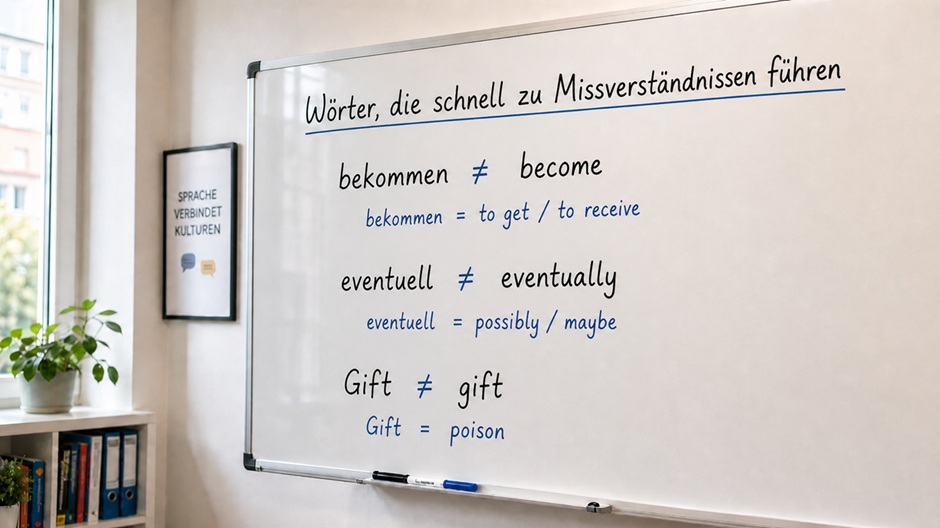 Wörter, die schnell zu Missverständnissen führen
bekommen ≠ become
bekommen = to get / to receive
eventuell ≠ eventually
eventuell = possibly / maybe
Gift ≠ gift
Gift = poison
SPRACHE
VERBINDET
KULTUREN